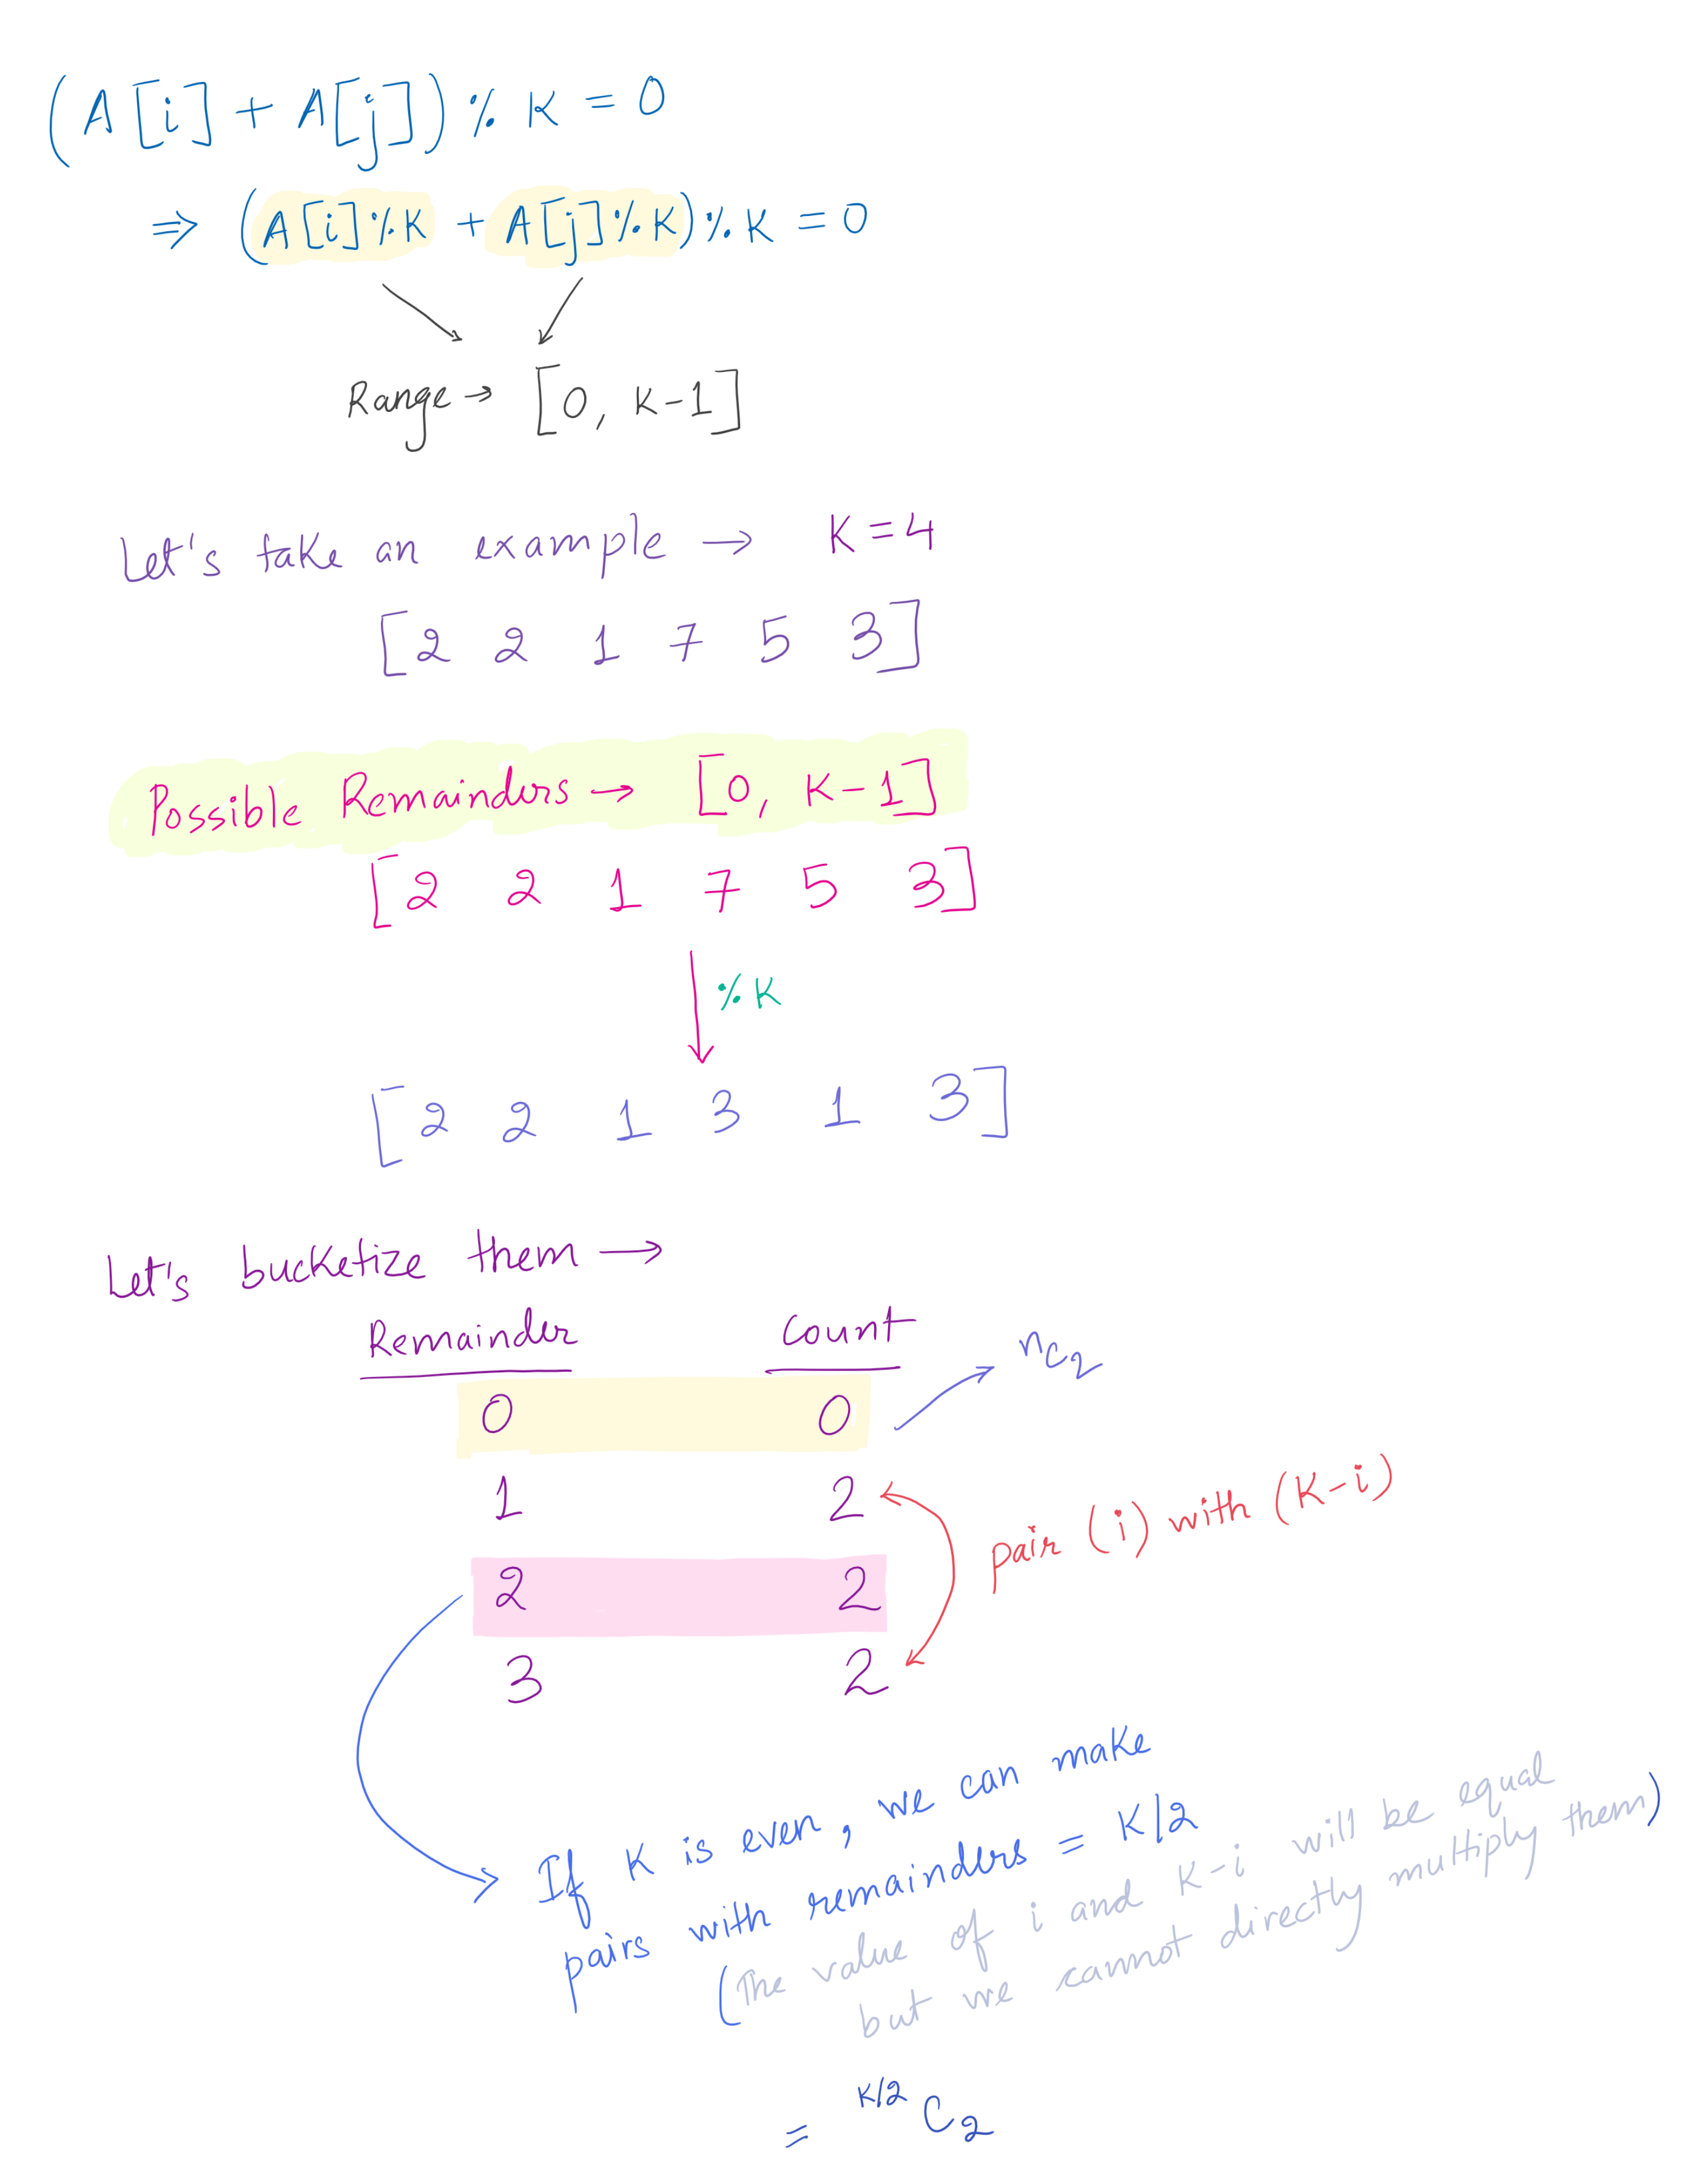 (A[i] + A[j]) % K = 0
⇒ (A[i]%K + A[j]%K)%K = 0
Range → [0, K-1]
Let's take an example → K=4
[2 2 1 7 5 3]
Possible Remainders → [0, K-1]
[2 2 1 7 5 3]
%K
[2 2 1 3 1 3]
Let's bucketize them →
Remainder Count
0 0 ⁿC₂
1 2
pair (i) with (K-i)
2 2
3 2
If K is even, we can make
pairs with remainders = K/2
(The value of i and K-i will be equal
but we cannot directly multiply them)
= ᴷ/²C₂